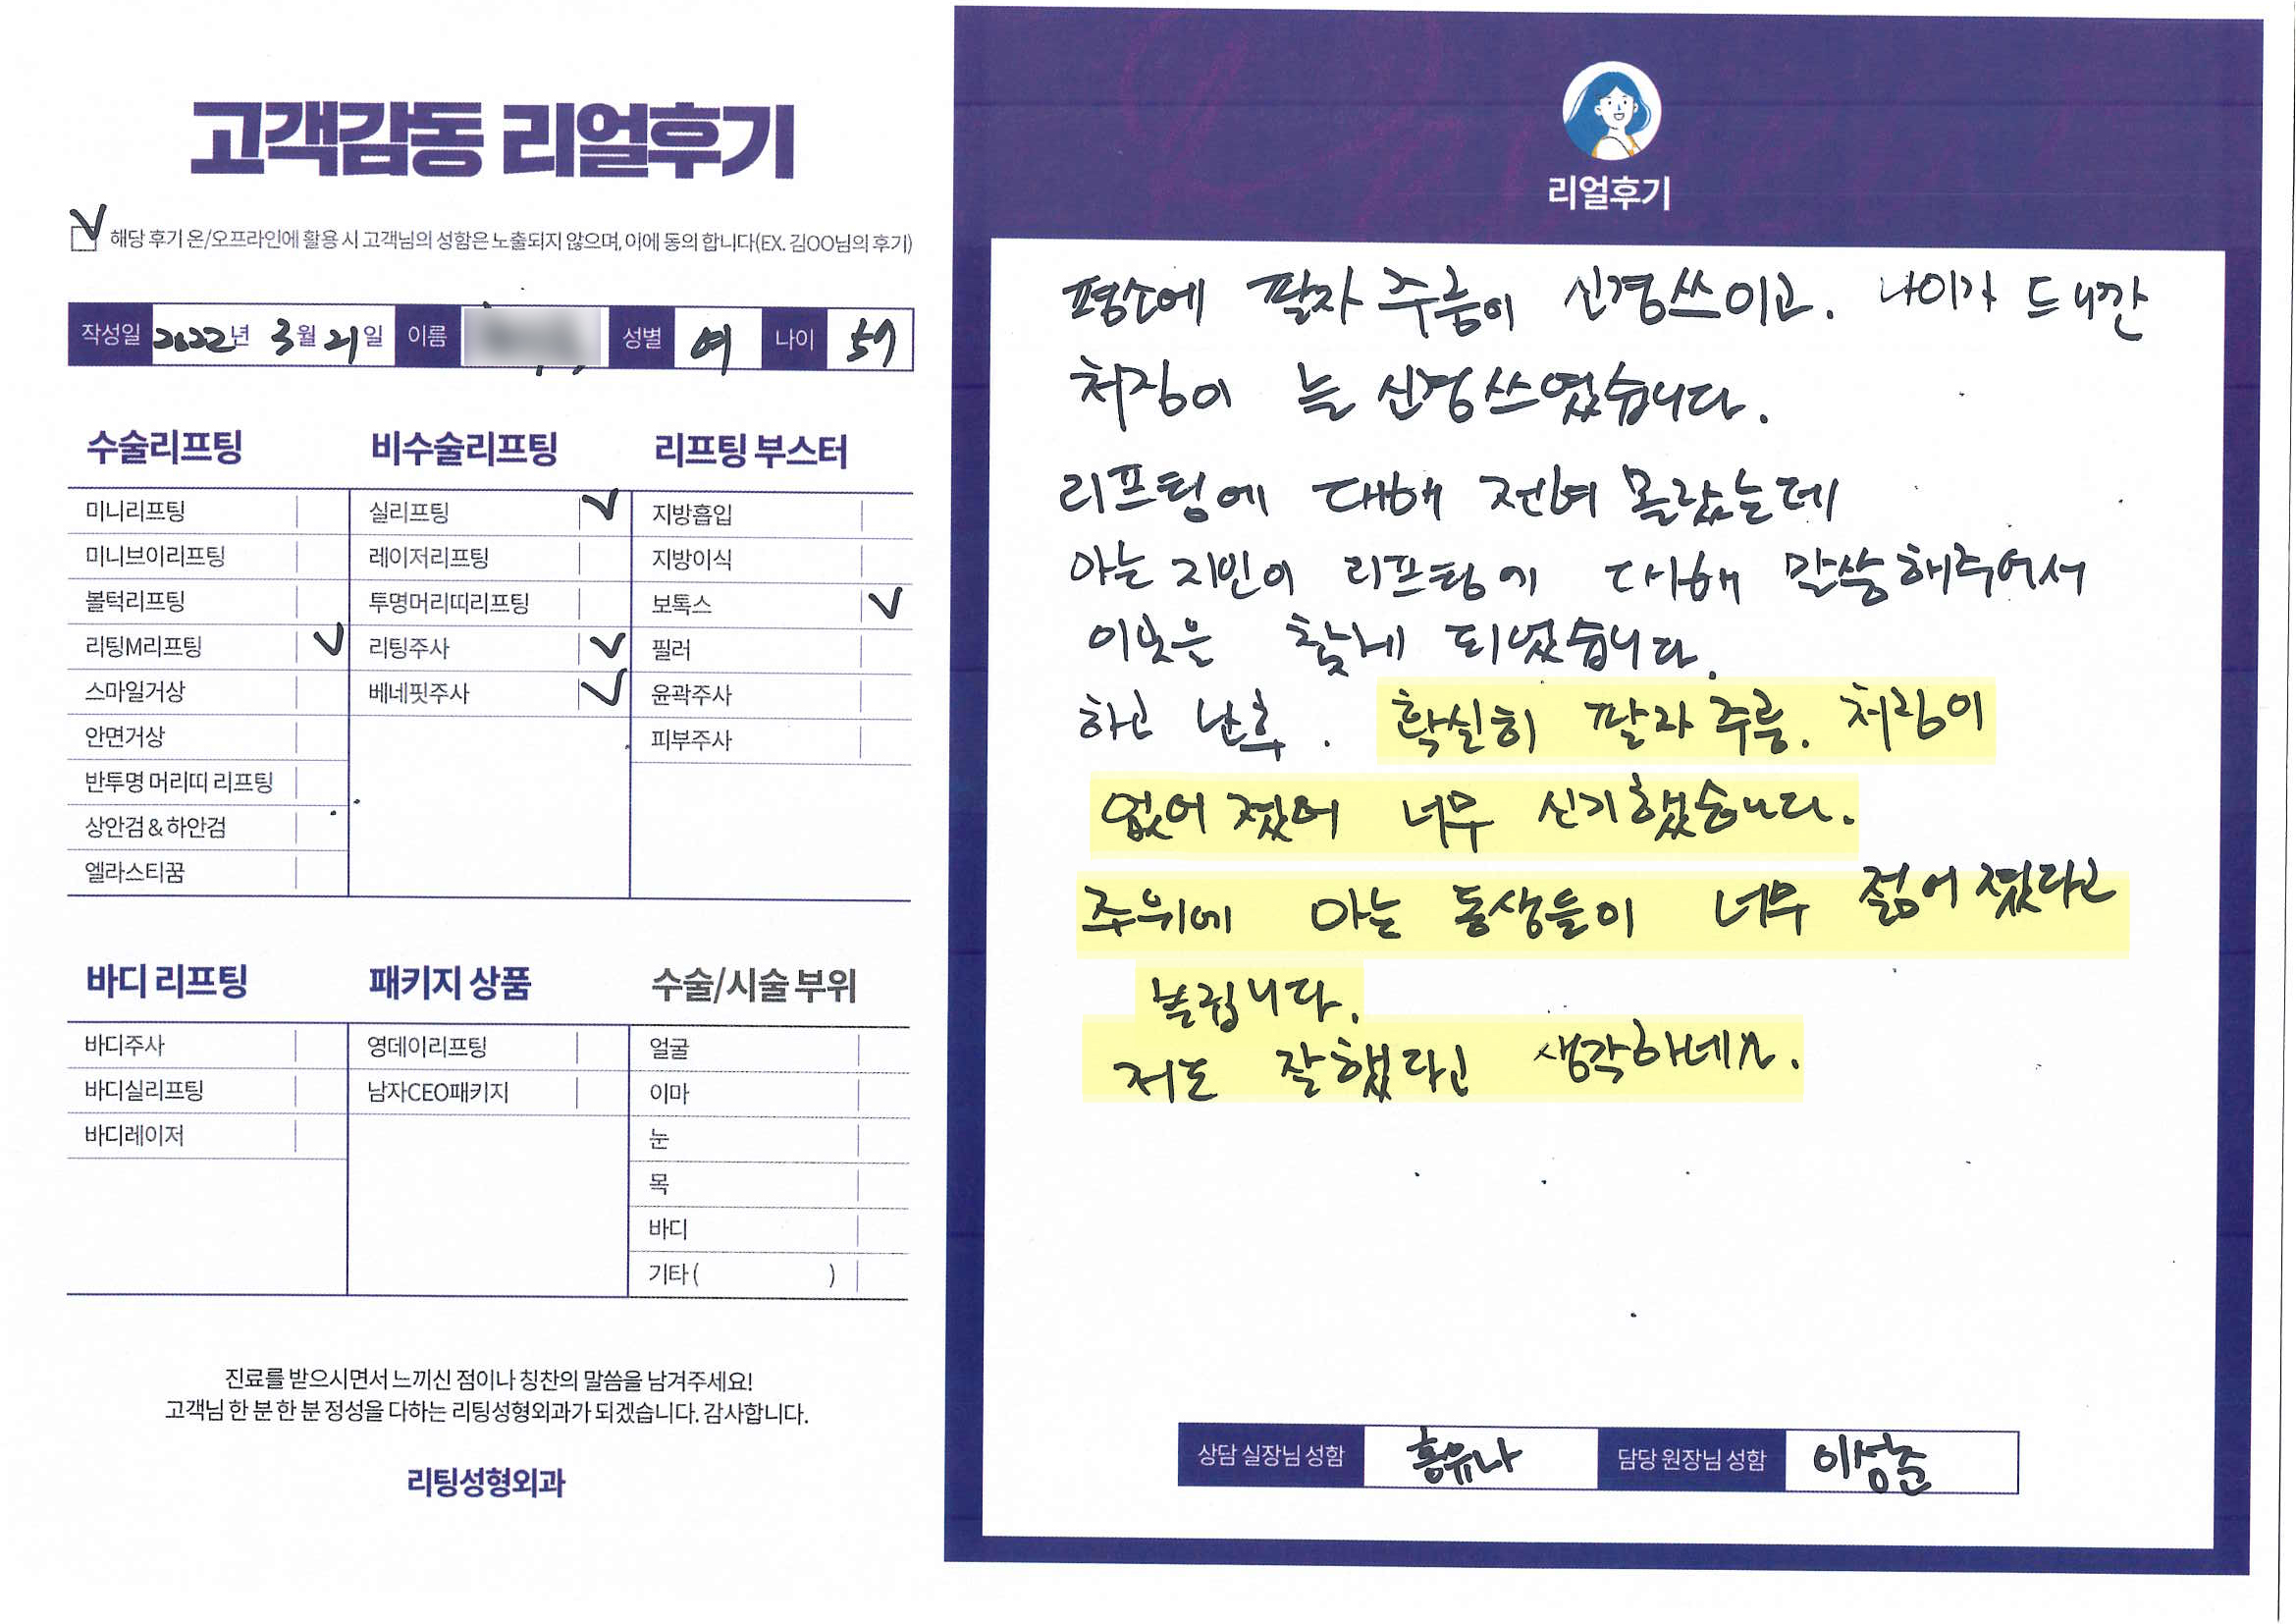 고객감동 리얼후기
해당 후기 온/오프라인에 활용 시 고객님의 성함은 노출되지 않으며, 이에 동의 합니다(EX. 김OO님의 후기)
작성일 2022년 3월 21일 이름 성별 여 나이 57
수술리프팅
미니리프팅
미니브이리프팅
볼턱리프팅
리팅M리프팅
스마일거상
안면거상
반투명 머리띠 리프팅
상안검 & 하안검
엘라스티꿈
비수술리프팅
실리프팅
레이저리프팅
투명머리띠리프팅
리팅주사
베네핏주사
리프팅 부스터
지방흡입
지방이식
보톡스
필러
윤곽주사
피부주사
바디 리프팅
바디주사
바디실리프팅
바디레이저
패키지 상품
영데이리프팅
남자CEO패키지
수술/시술 부위
얼굴
이마
눈
목
바디
기타 ( )
진료를 받으시면서 느끼신 점이나 칭찬의 말씀을 남겨주세요!
고객님 한 분 한 분 정성을 다하는 리팅성형외과가 되겠습니다. 감사합니다.
리팅성형외과
리얼후기
평소에 팔자 주름이 신경쓰이고. 나이가 드니깐
처짐이 늘 신경쓰였습니다.
리프팅에 대해 전혀 몰랐는데
아는 지인이 리프팅에 대해 말씀해주어서
이곳은 찾게 되었습니다.
하고 난후. 확실히 팔자 주름. 처짐이
없어 졌어 너무 신기했습니다.
주위에 아는 동생들이 너무 젊어 졌다고
놀랍니다.
저도 잘했다고 생각하네요.
상담 실장님 성함 홍유나 담당 원장님 성함 이성준